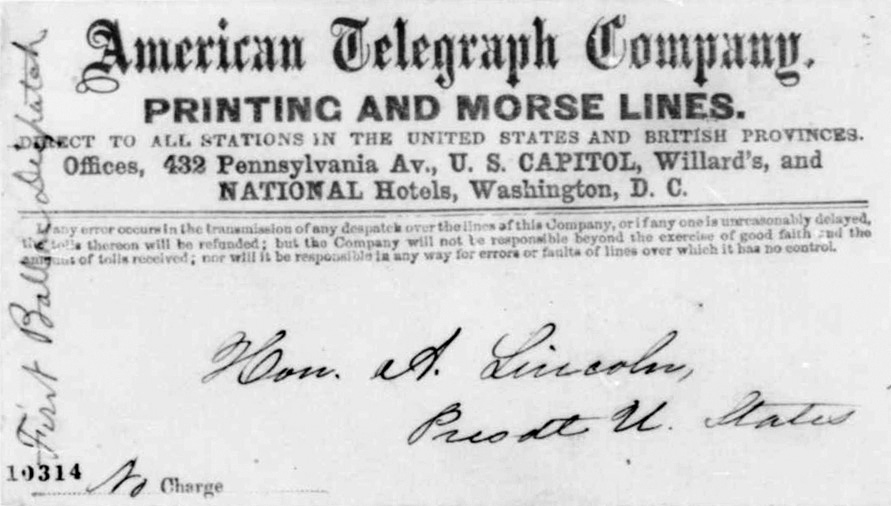 American Telegraph Company.
PRINTING AND MORSE LINES.
DIRECT TO ALL STATIONS IN THE UNITED STATES AND BRITISH PROVINCES.
Offices, 432 Pennsylvania Av., U. S. CAPITOL, Willard's, and
NATIONAL Hotels, Washington, D. C.
If any error occurs in the transmission of any despatch over the lines of this Company, or if any one is unreasonably delayed,
the tolls thereon will be refunded; but the Company will not be responsible beyond the exercise of good faith and the
amount of tolls received; nor will it be responsible in any way for errors or faults of lines over which it has no control.
First Balloon dispatch
Hon. A. Lincoln,
Presdt U. States
10314 No Charge